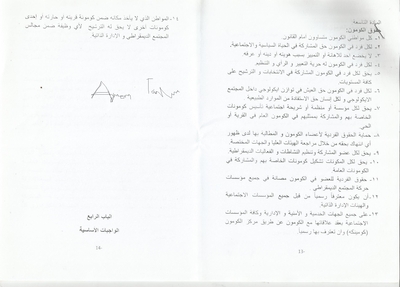 المادة التاسعة
حقوق الكومون:
١- كل مواطني الكومون متساوون أمام القانون
٢- لكل فرد في الكومون حق المشاركة في الحياة السياسية والاجتماعية.
٣- لا يخضع أحد للاهانة أو التمييز بسبب هويته أو دينه أو عرقه.
٤- لكل فرد في الكومون له حرية التعبير و الرأي و التنظيم
٥- يحق لكل فرد في الكومون المشاركة في الانتخابات و الترشيح على
كافة المستويات.
٦- لكل فرد في الكومون حق العيش في توازن ايكولوجي داخل المجتمع
الايكولوجي و لكل إنسان حق الاستفادة من الموارد الطبيعية
٧- يحق لكل مؤسسة أو منظمة أو شريحة اجتماعية تأسيس كومونات
الخاصة بهم والمشاركة بممثليهم في الكومون العام في القرية أو
الحي.
٨- حماية الحقوق الفردية لأعضاء الكومون و المطالبة بها لدى ظهور
أي انتهاك بحقه من خلال مراجعة الهيئات العليا و الجهات المختصة.
٩- يحق لكل عضو المشاركة وتنظيم النشاطات و الفعاليات الديمقراطية.
١٠- يحق لكل المكونات تشكيل كومونات الخاصة بهم والمشاركة في
الكومونات العامة.
١١- حقوق الفردية للعضو في الكومون مصانة في جميع مؤسسات
حركة المجتمع الديمقراطي
١٢- أن يكون معترفاً رسمياً من قبل جميع المؤسسات الاجتماعية
والهيئات الإدارة الذاتية.
١٣- على جميع الجهات الخدمية و الأمنية و الإدارية وكافة المؤسسات
الاجتماعية بعقد علاقاتها مع الكومون عن طريق مركز الكومون
(كومينكه) وان تعترف بها رسمياً.
١٤- المواطن الذي لا يأخذ مكانه ضمن كومونة قريته أو حارته أو إحدى
كومونات أخرى لا يحق له الترشيح لأي وظيفة ضمن مجالس
المجتمع الديمقراطي و الإدارة الذاتية.
الباب الرابع
الواجبات الأساسية